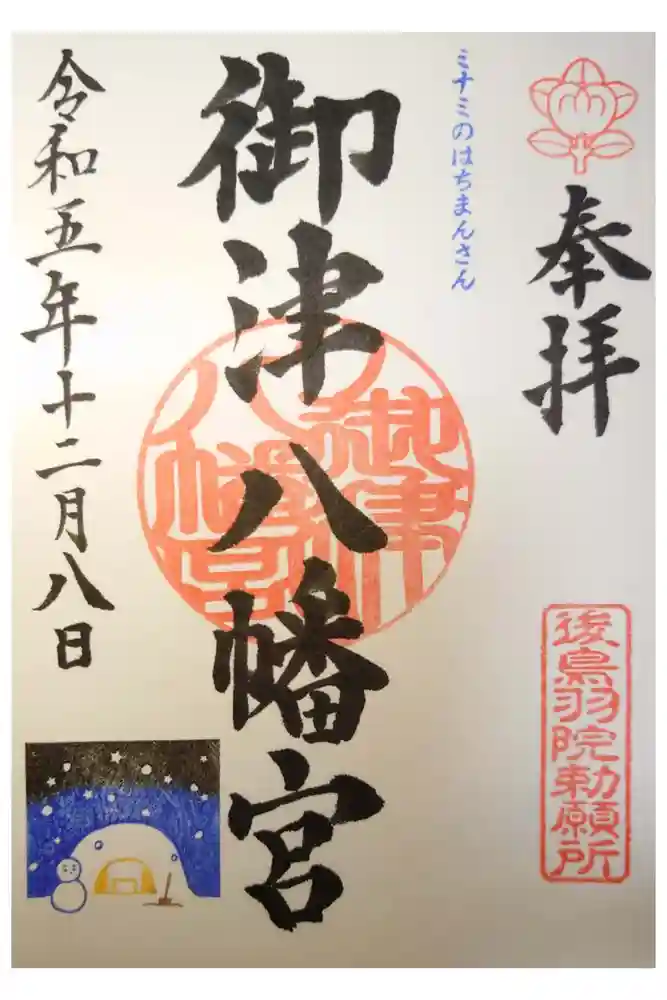 奉拝
後鳥羽院勅願所
ミナミのはちまんさん
御津八幡宮
御津八幡宮
令和五年十二月八日